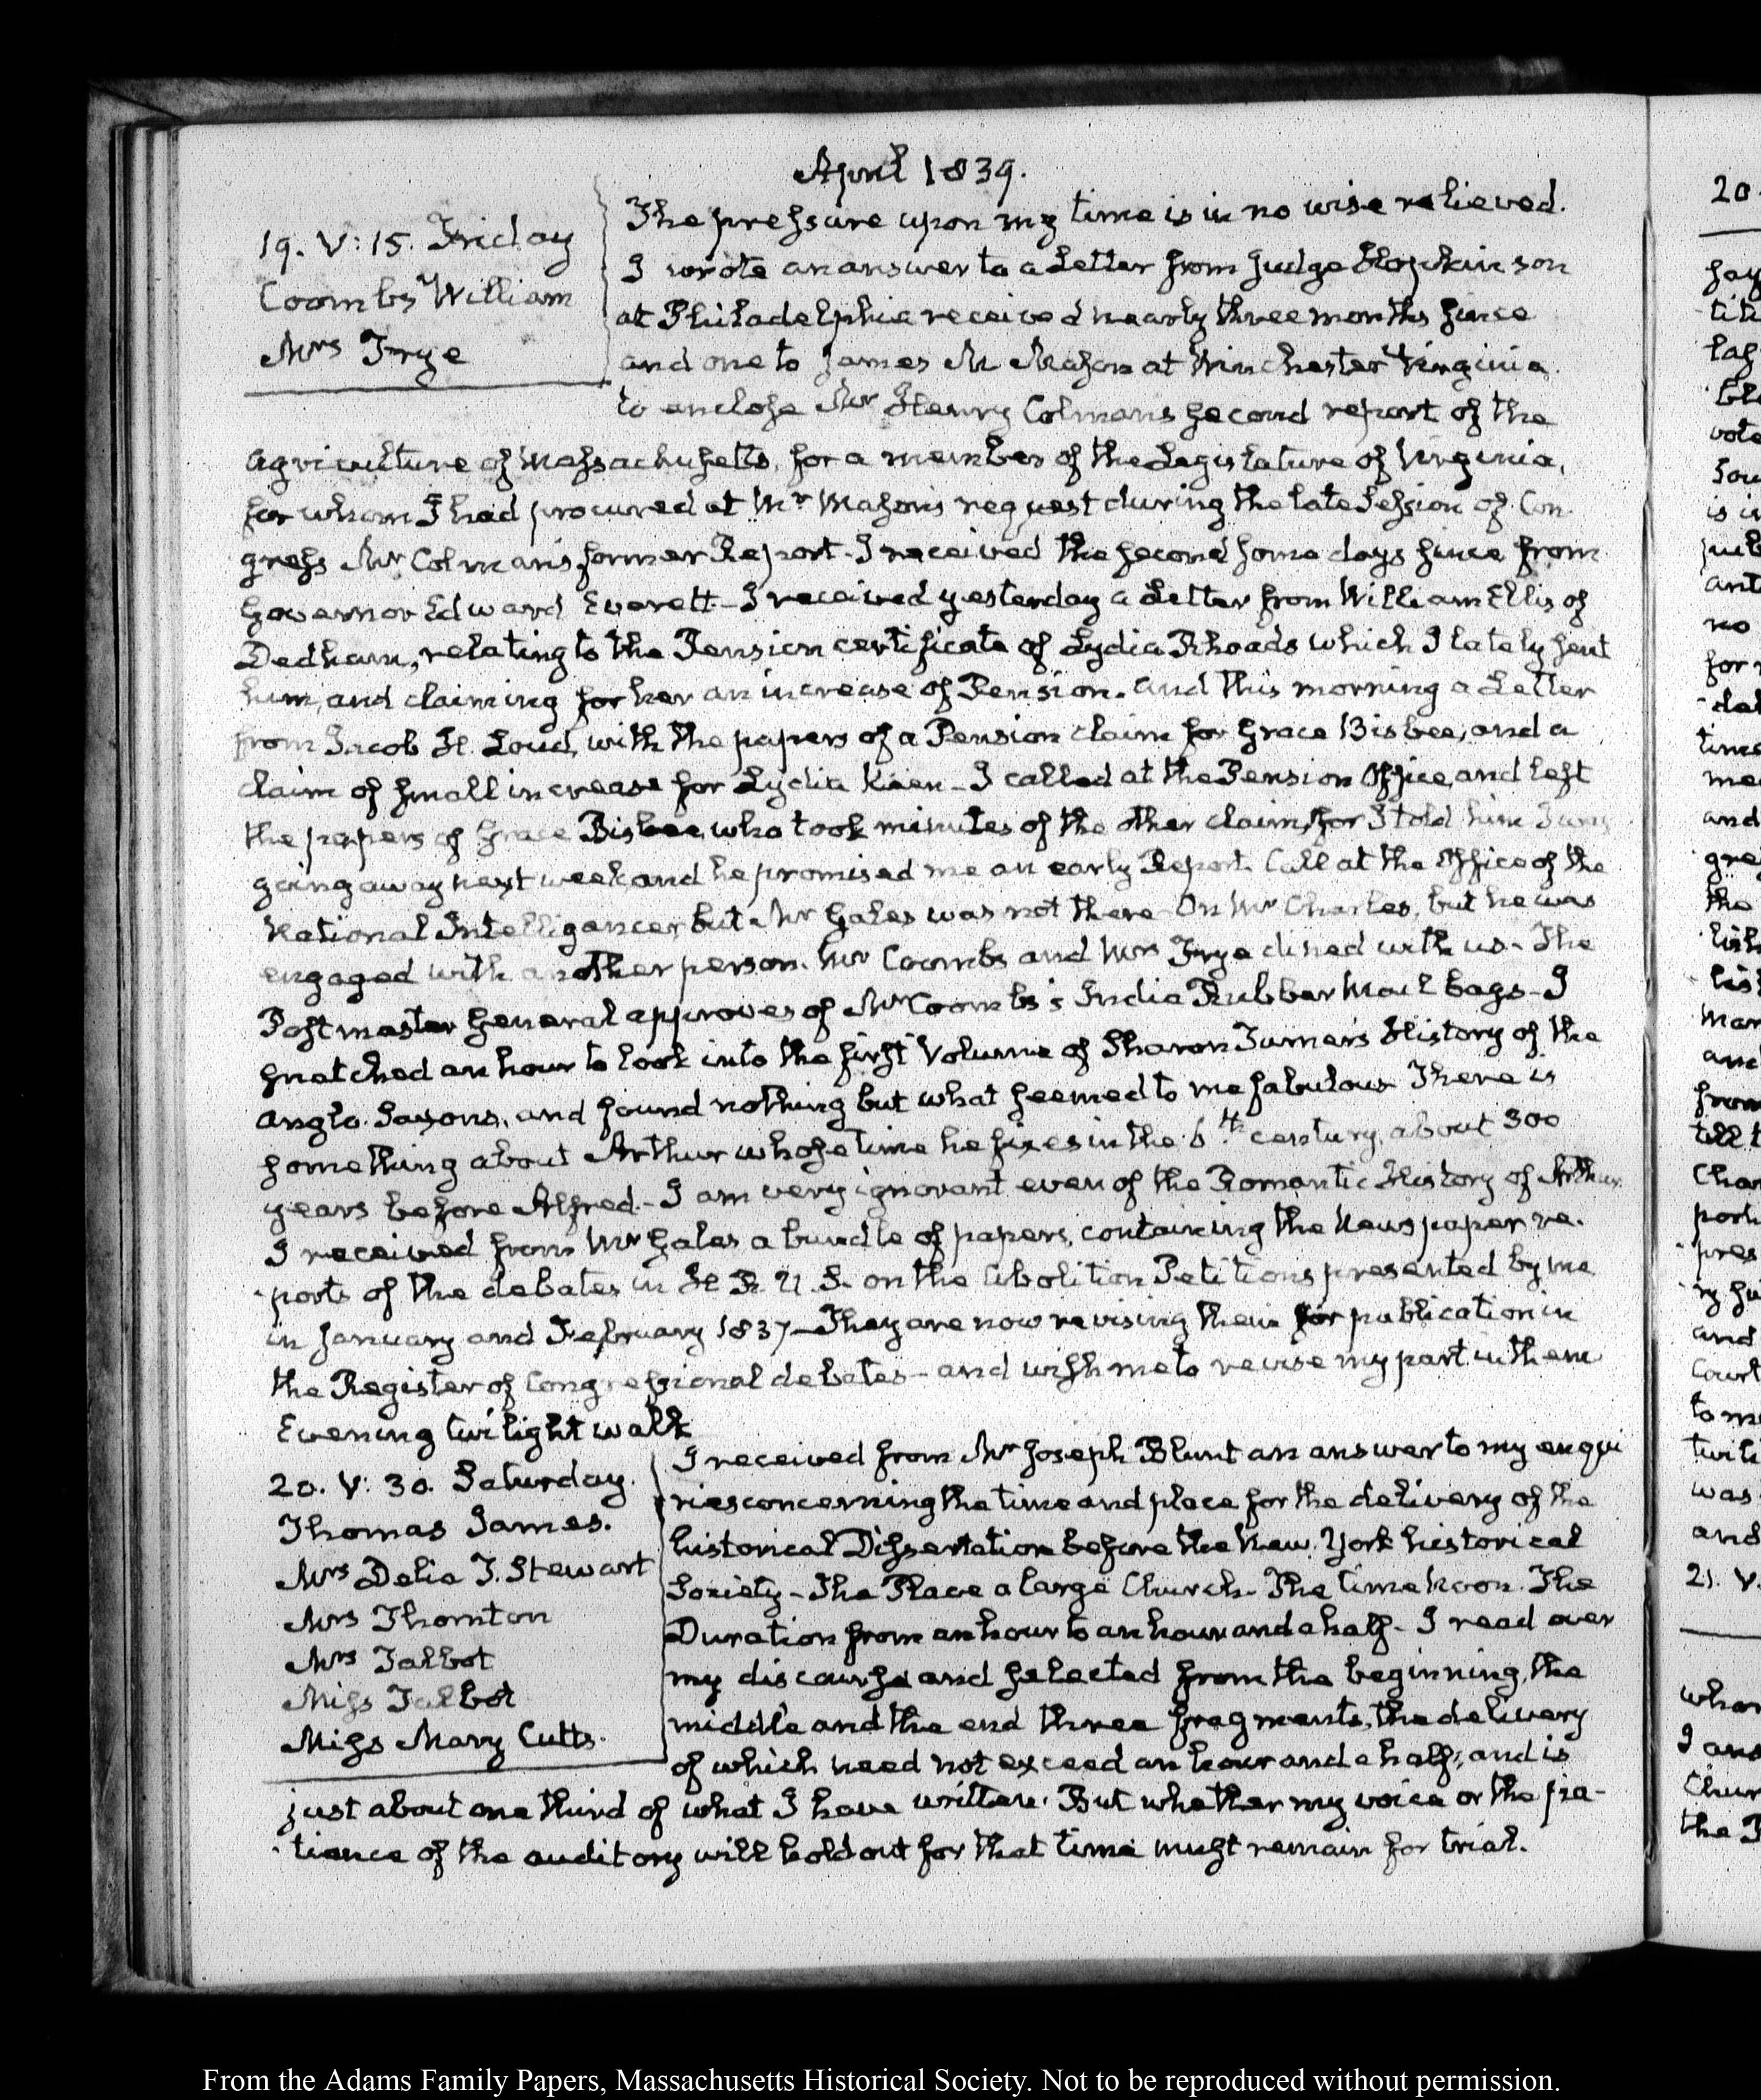 April 1839.
19. V:15. Friday
Coombs William
Mrs Frye
The pressure upon my time is in no wise relieved.
I wrote an answer to a Letter from Judge Hopkinson
at Philadelphia received nearly three months since
and one to James M Mason at Winchester Virginia.
to enclose Mr Henry Colman's second report of the
Agriculture of Massachusetts, for a member of the Legislature of Virginia,
for whom I had procured at Mr Mason's request during the late Session of Con
gress Mr Colman's former Report. I received the second some days since from
Governor Edward Everett- I received yesterday a Letter from William Ellis of
Dedham, relating to the Pension certificate of Lydia Rhoads which I lately sent
him, and claiming for her an increase of Pension. and this morning a Letter
from Jacob H. Loud, with the papers of a Pension claim for Grace Bisbee, and a
claim of small increase for Lydia Keen- I called at the Pension Office, and left
the papers of Grace Bisbee, who took minutes of the other claim, for I told him I was
going away next week and he promised me an early Report. Call at the Office of the
National Intelligencer, but Mr Gales was not there- On Mr Charles, but he was
engaged with another person. Mr Coombs and Mrs Frye dined with us- The
Postmaster General approves of Mr Coombs's India Rubber Mail bags- I
snatched an hour to look into the first Volume of Sharon Turner's History of the
Anglo-Saxons, and found nothing but what seemed to me fabulous There is
something about Arthur whose time he fixes in the 6th century, about 300
years before Alfred.- I am very ignorant even of the Romantic History of Arthur.
I received from Mr Gales a bundle of papers, containing the Newspaper re-
ports of the debates in H. R. U. S. on the Abolition Petitions presented by me
in January and February 1837- They are now revising them for publication in
the Register of Congressional debates- and wish me to revise my part in them
Evening twilight walk
20. V: 30. Saturday.
Thomas James.
Mrs Delia T. Stewart
Mrs Thornton
Mrs Talbot
Miss Talbot
Miss Mary Cutts.
I received from Mr Joseph Blunt an answer to my enqui
ries concerning the time and place for the delivery of the
historical Dissertation before the New York historical
Society- The Place a large Church- The time Noon. The
Duration from an hour to an hour and a half- I read over
my discourse and selected from the beginning, the
middle and the end three fragments, the delivery
of which need not exceed an hour and a half, and is
just about one third of what I have written. But whether my voice or the pa-
tience of the auditory will hold out for that time must remain for trial.
20
21. V
From the Adams Family Papers, Massachusetts Historical Society. Not to be reproduced without permission.